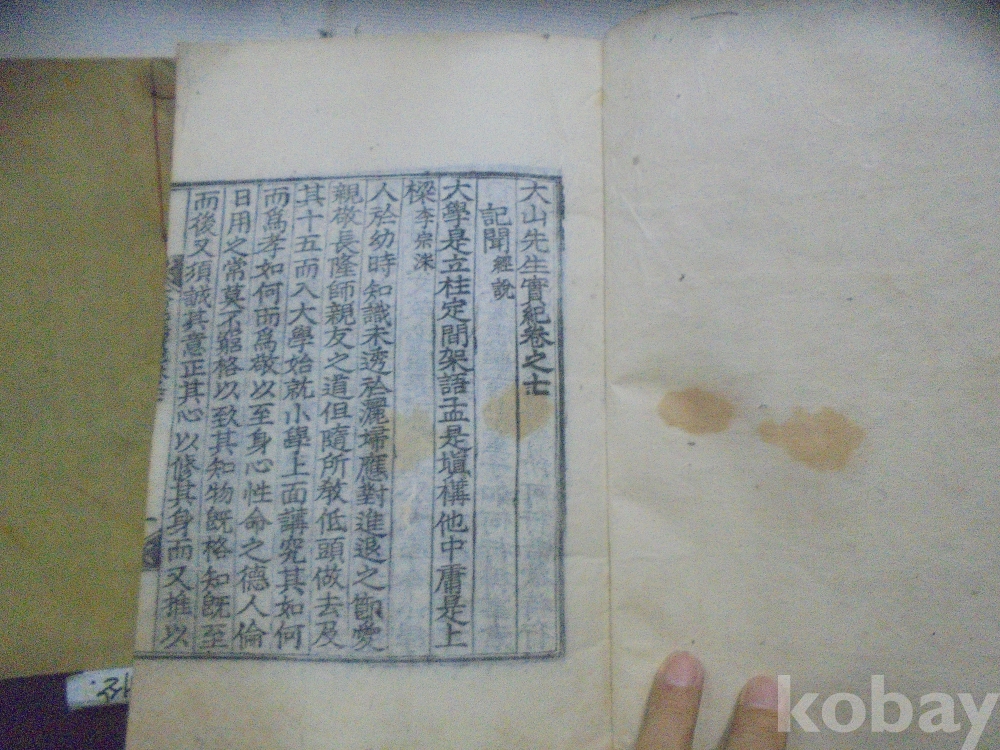 大山先生實紀卷之七
記聞 經說
大學是立柱定間架語孟是塡構他中庸是上
樑 李宗洙
人於幼時知識未透於灑掃應對進退之節愛
親敬長隆師親友之道但隨所敎低頭做去及
其十五而入大學始就小學上面講究其如何
而爲孝如何而爲敬以至身心性命之德人倫
日用之常莫不窮格以致其知物旣格知旣至
而後又須誠其意正其心以修其身而又推以
kobay